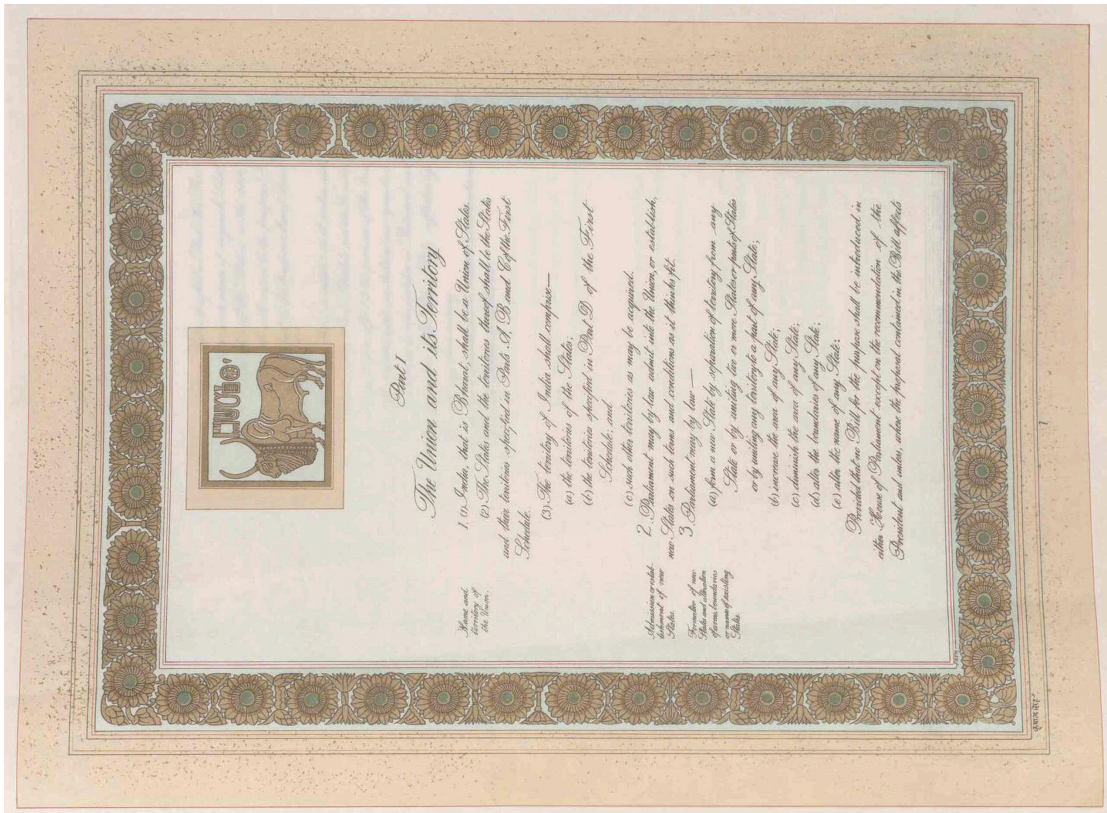 Part I
The Union and its Territory
Name and
territory of
the Union.
1. (1) India, that is Bharat, shall be a Union of States.
(2) The States and the territories thereof shall be the States
and their territories specified in Parts A, B and C of the First
Schedule.
(3) The territory of India shall comprise—
(a) the territories of the States;
(b) the territories specified in Part D of the First
Schedule; and
(c) such other territories as may be acquired.
Admission or estab-
lishment of new
States.
2. Parliament may by law admit into the Union, or establish,
new States on such terms and conditions as it thinks fit.
Formation of new
States and alteration
of areas, boundaries
or names of existing
States.
3. Parliament may by law—
(a) form a new State by separation of territory from any
State or by uniting two or more States or parts of States
or by uniting any territory to a part of any State;
(b) increase the area of any State;
(c) diminish the area of any State;
(d) alter the boundaries of any State;
(e) alter the name of any State:
Provided that no Bill for the purpose shall be introduced in
either House of Parliament except on the recommendation of the
President and unless, where the proposal contained in the Bill affects
1